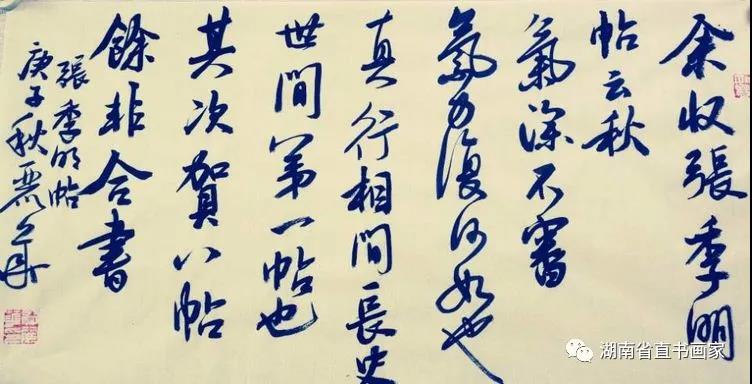 余収張季明
帖云秋
氣深不審
氣力復何如也
真行相間長史
世間第一帖也
其次賀八帖
餘非合書
張季明帖
庚子秋麗華
湖南省直书画家